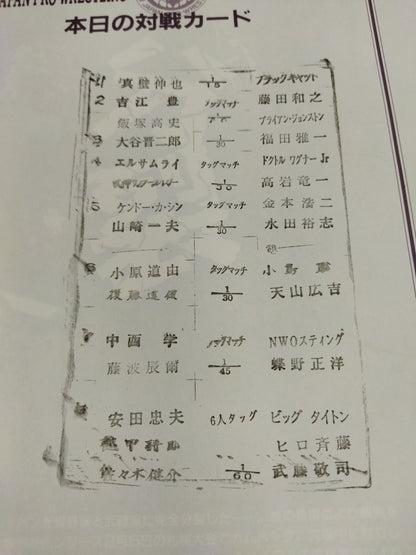 JAPAN PRO WRESTLING
本日の対戦カード
1 真壁伸也 1/15 ブラックキャット
2 吉江 豊 タッグマッチ 藤田和之
飯塚高史 ブライアン・ジョンストン
3 大谷晋二郎 1/30 福田雅一
4 エルサムライ タッグマッチ ドクトル ワグナー Jr
1/30 高岩竜一
5 ケンドー・カ・シン タッグマッチ 金本浩二
山崎一夫 1/30 永田裕志
6 小原道由 タッグマッチ 小島 聡
後藤達俊 1/30 天山広吉
7 中西 学 タッグマッチ NWOスティング
藤波辰爾 1/45 蝶野正洋
8 安田忠夫 6人タッグ ビッグ タイトン
越中詩郎 ヒロ斉藤
佐々木健介 1/60 武藤敬司